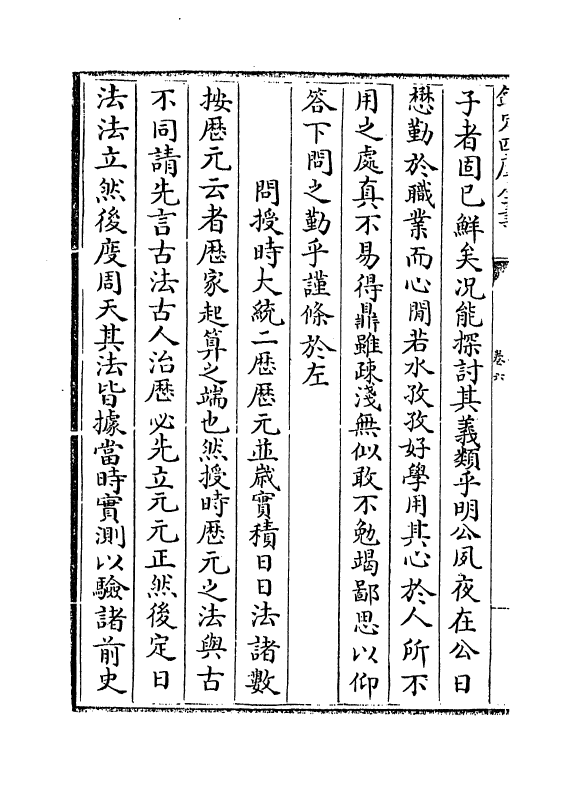 欽定四庫全書
卷六
子者固已鮮矣况能探討其義類乎明公夙夜在公日
懋勤於職業而心閒若水孜孜好學用其心於人所不
用之處真不易得鼎雖疎淺無似敢不勉竭鄙思以仰
答下問之勤乎謹條於左
問授時大統二厯厯元並歲實積日日法諸數
按厯元云者厯家起算之端也然授時厯元之法與古
不同請先言古法古人治厯必先立元元正然後定日
法法立然後度周天其法皆據當時實測以驗諸前史